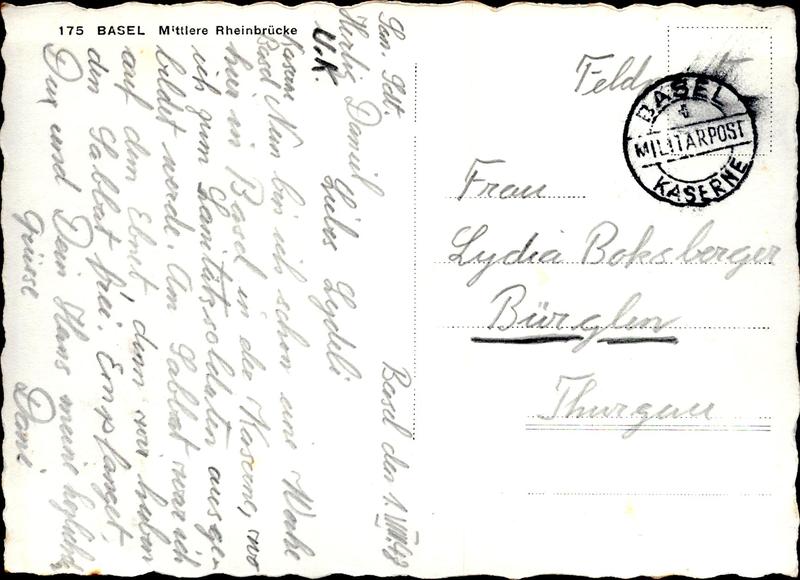 175 BASEL Mittlere Rheinbrücke
San. Sdt.
Hürli Daniel
U.K.
Kaserne
Basel
Basel den 1. VIII. 48
Liebs Lydeli
Nun bin ich schon eine Woche
hier in Basel in der Kaserne, wo
ich zum Sanitätssoldaten ausge-
bildet werde. Am Sabbat war ich
auf dem dem wir haben
den Sabbat frei. Empfanget
Du und Dein Hans meine herzlichst
Grüsse
Dani
Feldpost
BASEL
MILITÄRPOST
KASERNE
Frau
Lydia Boksberger
Bürglen
Thurgau